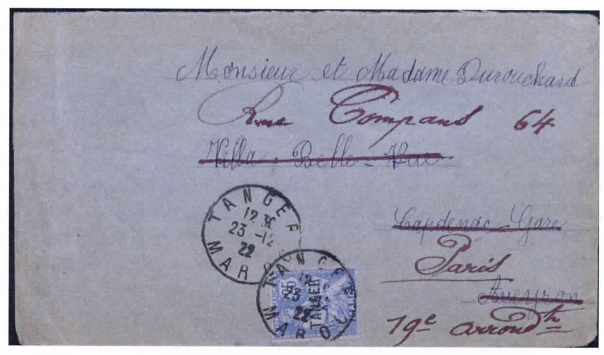 Monsieur et Madame Durouchard
Rue Compans 64
Villa - Belle - Vue
TANGER
12 30
23 -12
22
MAROC
Capdenac - Gare
Paris
Aveyron
19e arrondt
TANGER
23
22
TANGER
MAROC